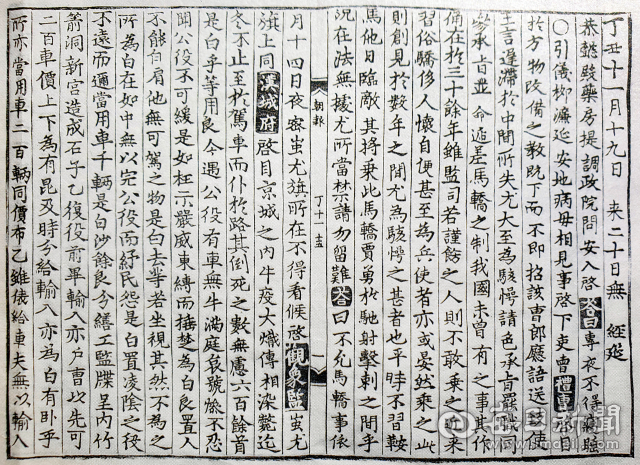 丁丑十一月十九日 來二十日無 經筵
恭懿殿藥房提調政院問安入啓 答曰 專夜不得寢睡
〇引儀柳濂延安地病母相見事啓下吏曹 禮曹 郎日
於方物改備之敎旣下而不卽招該曹郎廳語送致使
王言遲滯於中間所失尤大至爲駭愕請色承旨罷職同
副承旨並命遞差馬轎之制我國未曾有之事其作
俑在於三十餘年雖監司若謹飭之人則不敢乘之近來
習俗驕侈人懷自便甚至爲兵使者亦或晏然乘之此
則創見於數年之間尤爲駭愕之甚者也平時不習鞍
馬他日臨敵其將乘此馬轎賈勇於馳射擊刺之間乎
況在法無據尤所當禁請勿留難 答曰 不允馬轎事依
朝報 丁十一 一
月十四日夜密蚩尤旗所在不得看候啓 觀象監 蚩尤
旗上同 漢城府 啓目京城之內牛疫大熾傳相染斃迄
冬不止至於駕車而仆於路其倒死之數無慮六百餘首
是白乎等用良今遇公役有車無牛滿庭哀號慘不忍
聞公役不可緩是如枉示嚴威束縛而捶楚爲白良置人
不能自肩他無可駕之物是白去等若坐視其然不爲之
所爲白在如中無以完公役而紓民怨是白置凌陰之役
不遠而適當用車千輛是白沙餘良兮繕工監牒呈內竹
箭洞新宮造成石子乙復役前畢輸入亦戶曹以先可
二百車價上下爲有昆及時分給輸入亦爲白有臥乎
所亦當用車二百輛同價布乙雖俵給車夫無以輸入
每日新聞
www.imaeil.com